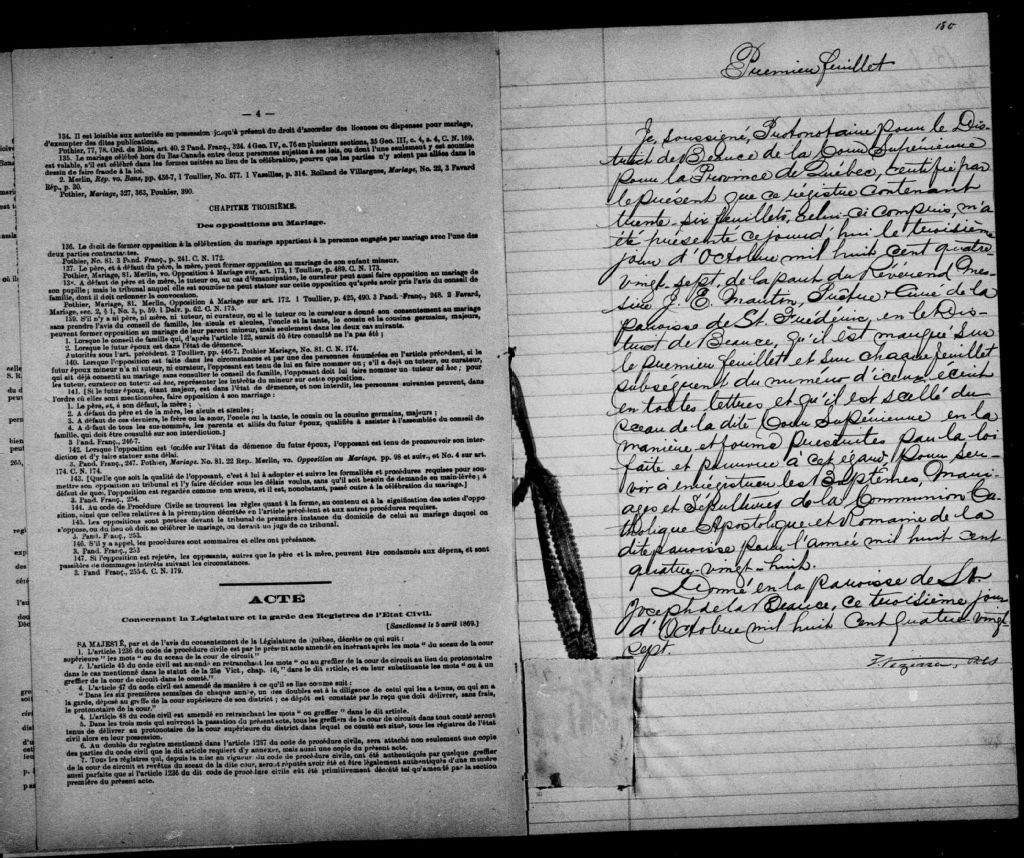 — 4 —
134. Il est loisible aux autorités en possession jusqu'à présent du droit d'accorder des licences ou dispenses pour mariage,
d'exempter des dites publications.
Pothier, 77, 78. Ord. de Blois, art. 40. 2 Pand. Franç., 324. 4 Geo. IV, c. 76 en plusieurs sections, 35 Geo. III, c. 4, s. 4, C. N. 169.
135. Le mariage célébré hors du Bas-Canada entre deux personnes sujettes à ses lois, ou dont l'une seulement y est soumise
est valable, s'il est célébré dans les formes usitées au lieu de la célébration, pourvu que les parties n'y soient pas allées dans le
dessin de faire fraude à la loi.
2. Merlin, Rép. vo. Bans, pp. 436-7, 1 Toullier, No. 577. 1 Vazilles, p. 314. Rolland de Villargues, Mariage, No. 23, 3 Favard
Rép., p. 30.
Pothier, Mariage, 327, 363, Pouhier, 390.
CHAPITRE TROISIÈME.
Des oppositions au Mariage.
136. Le droit de former opposition à la célébration du mariage appartient à la personne engagée par mariage avec l'une des
deux parties contractantes.
Pothier, No. 81. 3 Pand. Franç., p. 241. C. N. 172.
137. Le père, et à défaut du père, la mère, peut former opposition au mariage de son enfant mineur.
Pothier, Mariage, 81. Merlin, vo. Opposition à Mariage, sur art. 173, 1 Toullier, p. 489. C. N. 173.
A défaut de père et de mère, le tuteur ou, au cas d'émancipation, le curateur peut aussi faire opposition au mariage de
son pupille ; mais le tribunal auquel elle est soumise ne peut statuer sur cette opposition qu'après avoir pris l'avis du conseil de
famille, dont il doit ordonner la convocation.
Pothier, Mariage, 81, Merlin, Opposition à Mariage sur art. 172. 1 Toullier, p. 425, 490. 3 Pand. Franç., 248. 2 Favard,
Mariage, sec. 2, § 1, No. 3, p. 59. 1 Delv. p. 62. C. N. 175.
139. S'il n'y a ni père, ni mère, ni tuteur, ni curateur, ou si le tuteur ou le curateur a donné son consentement au mariage
sans prendre l'avis du conseil de famille, les aïeuls et aïeules, l'oncle et la tante, le cousin et la cousine germains, majeurs,
peuvent former opposition au mariage de leur parent mineur, mais seulement dans les deux cas suivants.
1. Lorsque le conseil de famille qui, d'après l'article 122, aurait dû être consulté ne l'a pas été ;
2. Lorsque le futur époux est dans l'état de démence.
Autorités sous l'art. précédent 2 Toullier, pp. 446-7. Pothier Mariage, No. 81. C. N. 174.
140. Lorsque l'opposition est faite dans les circonstances et par une des personnes énumérées en l'article précédent, si le
futur époux mineur n'a ni tuteur, ni curateur, l'opposant est tenu de lui en faire nommer un ; s'il a déjà un tuteur, ou curateur,
qui ait déjà consenti au mariage sans consulter le conseil de famille, l'opposant doit lui faire nommer un tuteur ad hoc ; pour
les tuteur, curateur ou tuteur ad hoc, représenter les intérêts du mineur sur cette opposition.
141. [Si le futur époux, étant majeur, est dans l'état de démence, et non interdit, les personnes suivantes peuvent, dans
l'ordre où elles sont mentionnées, faire opposition à son mariage :
1. Le père, et, à son défaut, la mère ;
2. A défaut du père et de la mère, les aïeuls et aïeules ;
3. A défaut de ces derniers, le frère ou la sœur, l'oncle ou la tante, le cousin ou la cousine germains, majeurs ;
4. A défaut de tous les sus-nommés, les parents et alliés du futur époux, qualifiés à assister à l'assemblée du conseil de
famille, qui doit être consulté sur son interdiction.]
3 Pand. Franç., 246-7.
142. Lorsque l'opposition est fondée sur l'état de démence du futur époux, l'opposant est tenu de promouvoir son inter-
diction et d'y faire statuer sans délai.
3. Pand. Franç., 247. Pothier, Mariage. No. 81. 22 Rep. Merlin, vo. Opposition au Mariage, pp. 98 et suiv., et No. 4 sur art.
174. C. N. 174.
143. [Quelque que soit la qualité de l'opposant, c'est à lui à adopter et suivre les formalités et procédures requises pour sou-
mettre son opposition au tribunal et l'y faire décider sous les délais voulus, sans qu'il soit besoin de demande en main-levée ; à
défaut de quoi, l'opposition est regardée comme non avenu, et il est, nonobstant, passé outre à la célébration du mariage.]
3 Pand. Franç., 254.
144. Au code de Procédure Civile se trouvent les règles quant à la forme, au contenu et à la signification des actes d'oppo-
sition, ainsi que celles relatives à la péremption décrétée en l'article précédent et aux autres procédures requises.
145. Les oppositions sont portées devant le tribunal de première instance du domicile de celui au mariage duquel on
s'oppose, ou du lieu où doit se célébrer le mariage, ou devant un juge de ce tribunal.
3. Pand. Franç., 253.
146. S'il y a appel, les procédures sont sommaires et elles ont préséance.
3. Pand. Franç., 253
147. Si l'opposition est rejetée, les opposants, autres que le père et la mère, peuvent être condamnés aux dépens, et sont
passibles de dommages intérêts suivant les circonstances.
3. Pand Franç., 255-6. C. N. 179.
ACTE
Concernant la Législature et la garde des Registres de l'Etat Civil.
[Sanctionné le 5 avril 1869.]
SA MAJESTÉ, par et de l'avis du consentement de la Législature de Québec, décrète ce qui suit :
1. L'article 1236 du code de procédure civile est par le présent acte amendé en insérant après les mots " du sceau de la cour
supérieure " les mots " ou du sceau de la cour de circuit."
2. L'article 45 du code civil est amendé en retranchant les mots " ou au greffier de la cour de circuit au lieu du protonotaire
dans le cas mentionné dans le statut de la 25e Vict., chap. 16," dans le dit article, et en leur substituant les mots " ou à un
greffier de la cour de circuit dans le comté."
4. L'article 47 du code civil est amendé de manière à ce qu'il se lise comme suit :
" Dans les six premières semaines de chaque année, un des doubles est à la diligence de celui qui les a tenus, ou qui en a
la garde, déposé au greffe de la cour supérieure de son district ; ce dépôt est constaté par le reçu que doit délivrer, sans frais,
le protonotaire de la cour."
4. L'article 48 du code civil est amendé en retranchant les mots " ou greffier " dans le dit article.
5. Dans les trois mois qui suivront la passation du présent acte, tous les greffiers de la cour de circuit dans tout comté seront
tenus de délivrer au protonotaire de la cour supérieure du district dans lequel ce comté est situé, tous les régistres de l'état
civil alors en leur possession.
6. Au double du registre mentionné dans l'article 1237 du code de procédure civile, sera attaché non seulement une copie
des parties du code civil que le dit article requiert d'y annexer, mais aussi une copie du présent acte.
7. Tous les régistres qui, depuis la mise en vigueur du code de procédure civile, ont été authentiqués par quelque greffier
de la cour de circuit et revêtus du sceau de la dite cour, seront réputés avoir été et être légalement authentiqués d'une manière
aussi parfaite que si l'article 1236 du dit code de procédure civile eût été primitivement décrété tel qu'amendé par la section
première du présent acte.
180
Premier feuillet
Je, soussigné, Protonotaire pour le Dis-
trict de Beauce de la Cour Supérieure
pour la Province de Québec, certifie par
le présent que ce régistre contenant
trente-six feuillets, celui-ci compris, m'a
été présenté ce jourd'hui le troisième
jour d'Octobre mil huit cent quatre
vingt-sept, de la part du Révérend Mes-
sire J. E. Manton, Prêtre & Curé de la
paroisse de St Frédéric, en le Dis-
trict de Beauce, qu'il est marqué sur
le premier feuillet et sur chaque feuillet
subséquent du numéro d'iceux écrit
en toutes lettres et qu'il est scellé du
sceau de la dite Cour Supérieure en la
manière et forme prescrites par la loi
faite et pourvue à cet égard, pour ser-
vir à enrégistrer les Baptêmes, Mari-
ages et Sépultures de la Communion Ca-
tholique Apostolique et Romaine de la
dite paroisse pour l'année mil huit cent
quatre-vingt-huit.
Donné en la paroisse de St
Joseph de la Beauce, ce troisième jour
d'Octobre mil huit cent quatre vingt
sept.